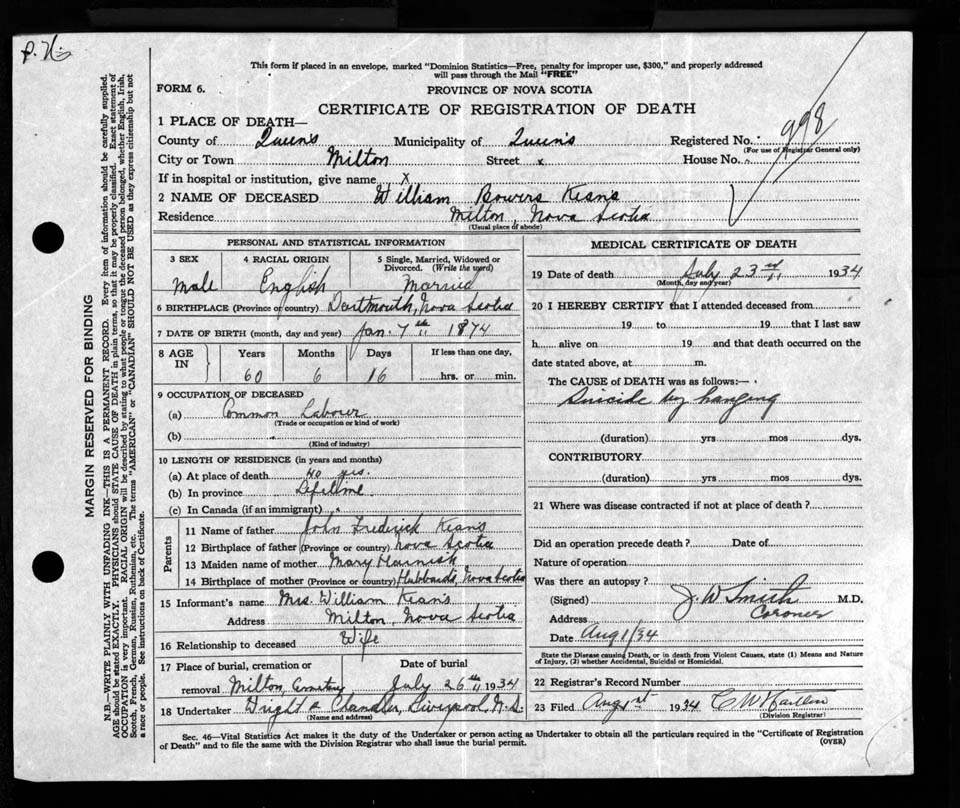 P. N.
This form if placed in an envelope, marked "Dominion Statistics—Free, penalty for improper use, $300," and properly addressed
will pass through the Mail "FREE"
FORM 6.
PROVINCE OF NOVA SCOTIA
CERTIFICATE OF REGISTRATION OF DEATH
1 PLACE OF DEATH—
County of Queen's Municipality of Queen's Registered No. 998
(For use of Registrar General only)
City or Town Milton Street x House No.
If in hospital or institution, give name X
2 NAME OF DECEASED William Bowers Keans
Residence Milton, Nova Scotia
(Usual place of abode)
PERSONAL AND STATISTICAL INFORMATION
3 SEX
Male
4 RACIAL ORIGIN
English
5 Single, Married, Widowed or
Divorced. (Write the word)
Married
6 BIRTHPLACE (Province or country) Dartmouth, Nova Scotia
7 DATE OF BIRTH (month, day and year) Jan. 7th 1874
8 AGE IN
Years Months Days If less than one day,
60 6 16 hrs. or min.
9 OCCUPATION OF DECEASED
(a) Common Labourer
(Trade or occupation or kind of work)
(b)
(Kind of industry)
10 LENGTH OF RESIDENCE (in years and months)
(a) At place of death 40 yrs.
(b) In province Lifetime
(c) In Canada (if an immigrant)
Parents
11 Name of father John Frederick Keans
12 Birthplace of father (Province or country) Nova Scotia
13 Maiden name of mother Mary Harnish
14 Birthplace of mother (Province or country) Hubbards, Nova Scotia
15 Informant's name Mrs. William Keans
Address Milton, Nova Scotia
16 Relationship to deceased Wife
17 Place of burial, cremation or Date of burial
removal Milton, Cemetery July 26th 1934
18 Undertaker Wright & Chandler, Liverpool, N.S.
(Name and address)
MEDICAL CERTIFICATE OF DEATH
19 Date of death July 23rd 1934
(Month, day and year)
20 I HEREBY CERTIFY that I attended deceased from
19 to 19 that I last saw
h alive on 19 and that death occurred on the
date stated above, at m.
The CAUSE of DEATH was as follows:—
Suicide by hanging
(duration) yrs mos dys.
CONTRIBUTORY
(duration) yrs mos dys.
21 Where was disease contracted if not at place of death?
Did an operation precede death? Date of
Nature of operation
Was there an autopsy?
(Signed) J. W Smith M.D.
Address Coroner
Date Aug 1/34
State the Disease causing Death, or in death from Violent Causes, state (1) Means and Nature
of Injury, (2) whether Accidental, Suicidal or Homicidal.
22 Registrar's Record Number
23 Filed Aug 1st 1934 C W
(Division Registrar)
Sec. 46—Vital Statistics Act makes it the duty of the Undertaker or person acting as Undertaker to obtain all the particulars required in the "Certificate of Registration
of Death" and to file the same with the Division Registrar who shall issue the burial permit.
(OVER)
MARGIN RESERVED FOR BINDING
N.B.—WRITE PLAINLY WITH UNFADING INK—THIS IS A PERMANENT RECORD. Every item of information should be carefully supplied.
AGE should be stated EXACTLY. PHYSICIANS should STATE CAUSE OF DEATH in plain terms, so that it may be properly classified. Exact statement of
OCCUPATION is very important. RACIAL ORIGIN will be described by stating to what people or tongue the deceased person belonged, whether English, Irish,
Scotch, French, German, Russian, Ruthenian, etc. The terms "AMERICAN" or "CANADIAN" SHOULD NOT BE USED as they express citizenship but not
a race or people. See instructions on back of Certificate.